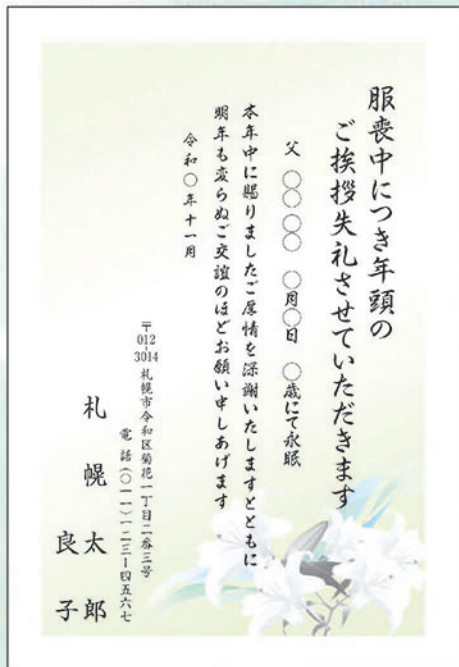 服喪中につき年頭の
ご挨拶失礼させていただきます
父　〇〇〇〇　〇月〇日　〇歳にて永眠
本年中に賜りましたご厚情を深謝いたしますとともに
明年も変らぬご交誼のほどお願い申しあげます
令和〇年十一月
〒012-3014 札幌市令和区菊花一丁目二番三号
電話（〇一一）一二三ー四五六七
札幌太郎
良子